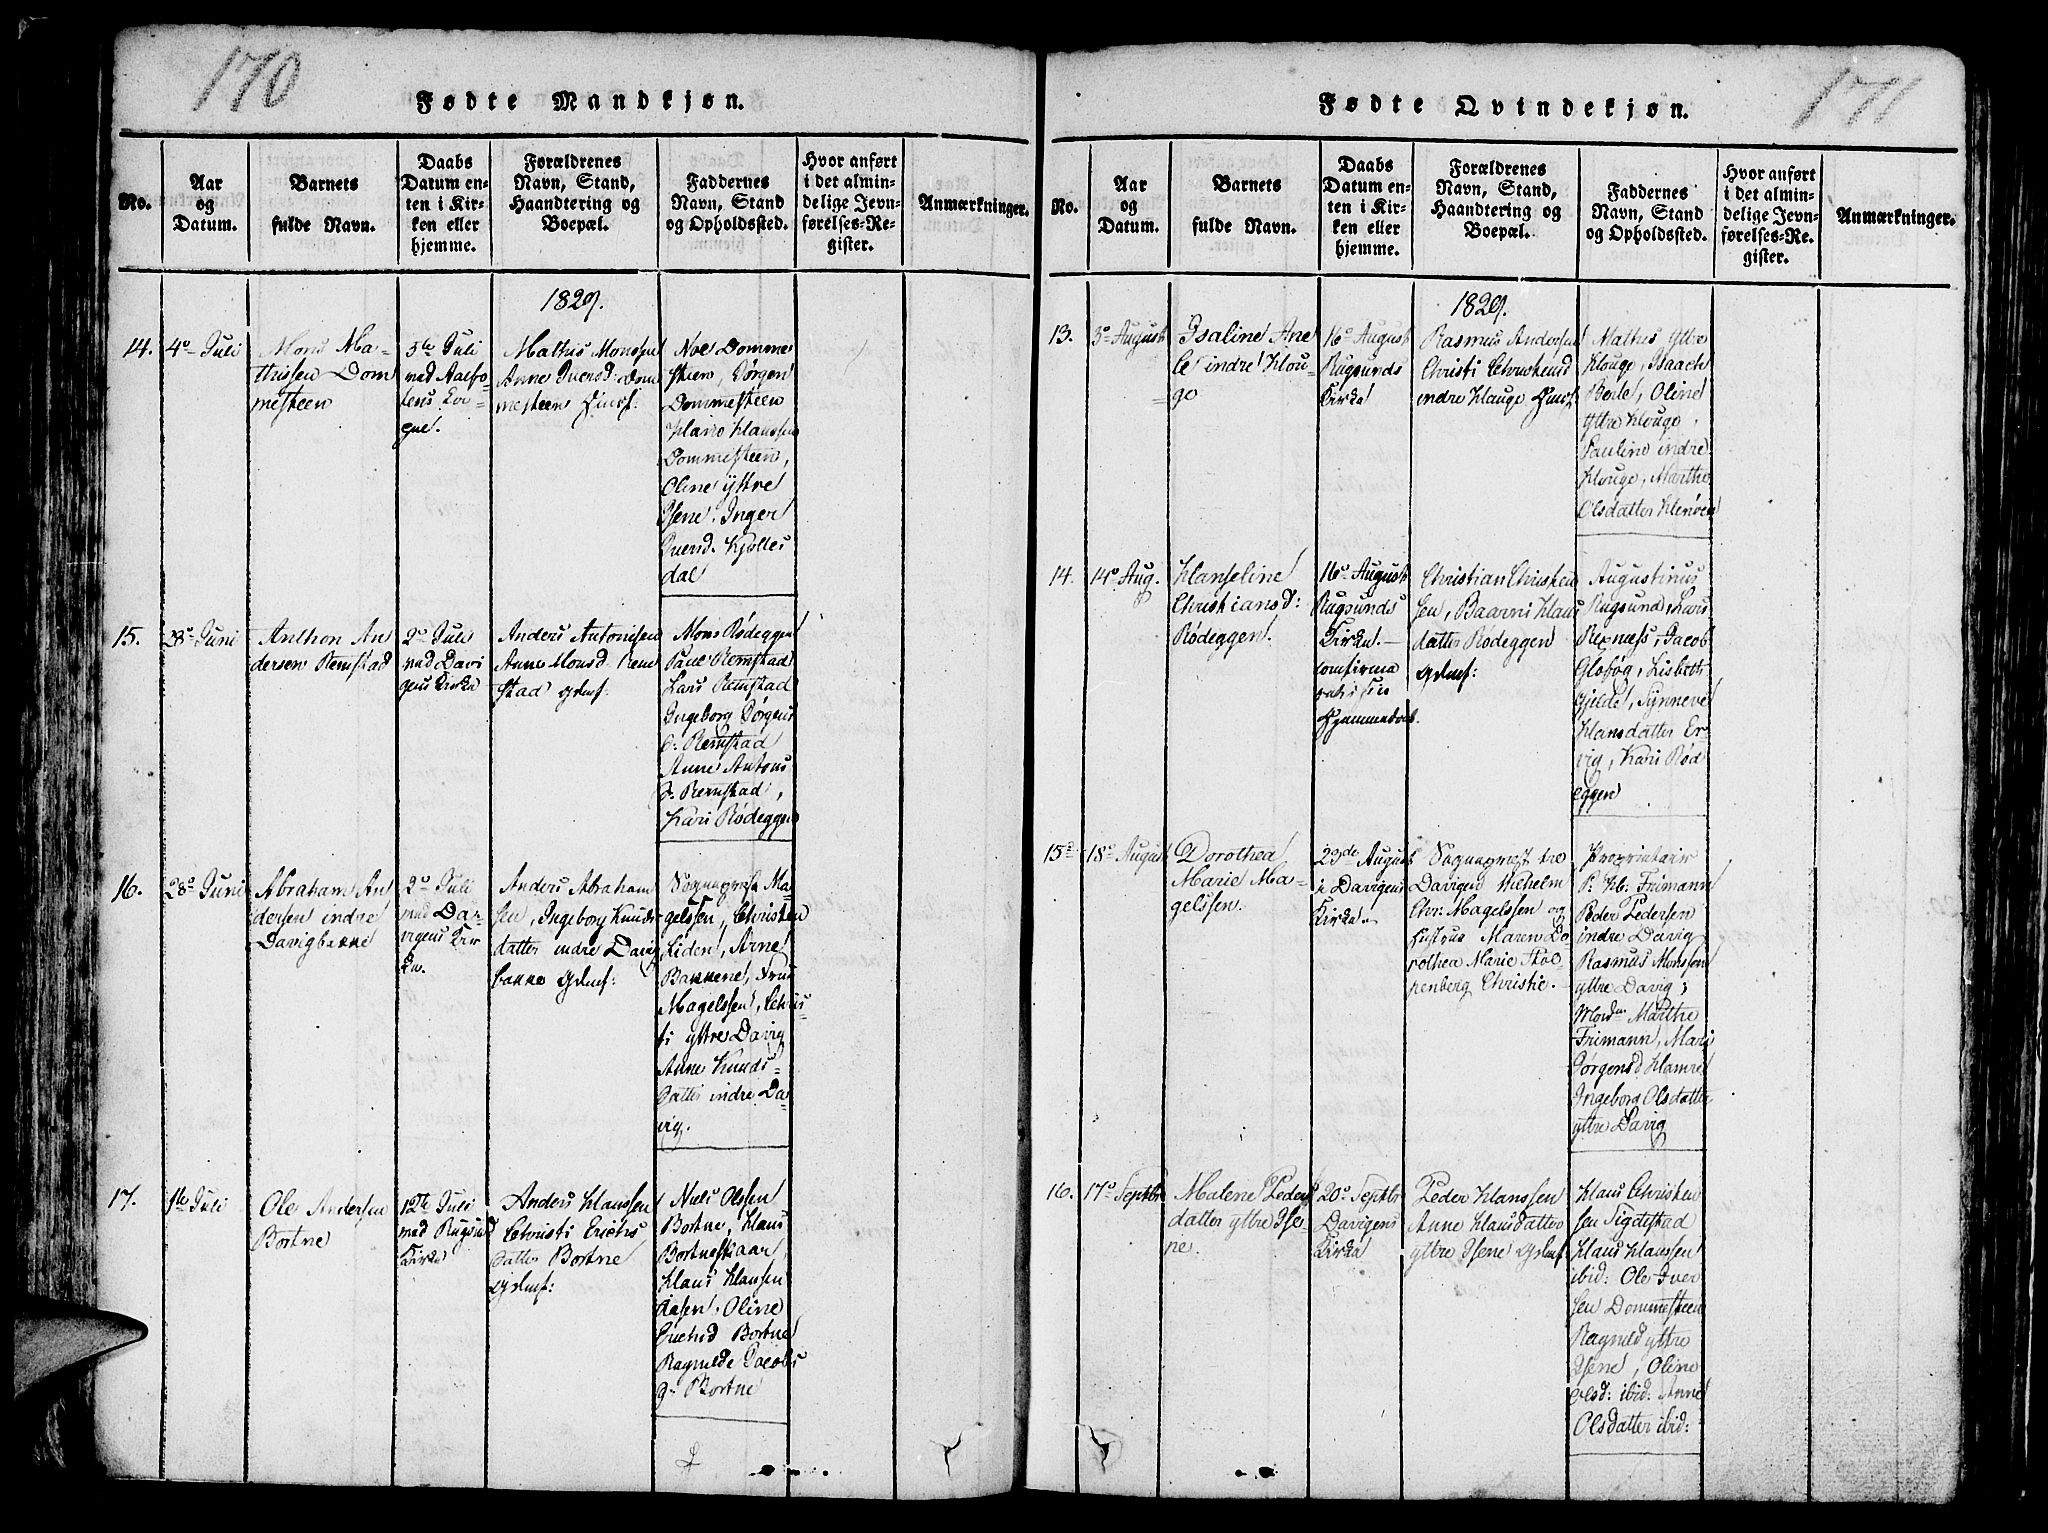 170
Fødte Mandkjøn.
No.
Aar
og
Datum.
Barnets
fulde Navn.
Daabs
Datum en-
ten i Kir-
ken eller
hjemme.
Forældrenes
Navn, Stand,
Haandtering og
Boepæl.
Faddernes
Navn, Stand
og Opholdssted.
Hvor anført
i det almin-
delige Jevn-
førelses-Re-
gister.
Anmærkninger.
1829.
14.
4o Juli
Mons Ma-
thissen Dom
mesteen
5te Juli
ved Aalfo-
tens
Mathis Monssen
Anne Iversd: Dom
mesteen
Noe Domme
steen, Jørgen
Dommesteen
Hans Hanssen
Dommesteen,
Oline yttre
Isene, Inger
Iversd. Kjølles
dal
15.
28o Juni
Anthon An
dersen Remstad
2o Juli
ved Davi
gens Kirke
Anders Antonisen
Anne Monsd Rem
stad gdmf:
Mons Rødeggen
Paul Remstad
Lars Remstad
Ingeborg Jørgens
d: Remstad
Anne Antons
d: Remstad,
Kari Rødeggen
16.
28o Juni
Abraham An
dersen indre
Davigbakke
2o Juli
ved Da-
vigens Kir
ke.
Anders Abraham
sen, Ingeborg Knuds-
datter indre Davig
bakke gdmf:
Sognepræst Ma-
gelssen, Christen
Liden, Arne
Bakkene, Frue
Magelssen, Chris-
ti yttre Davig
Anne Knuds-
datter indre Da-
vig.
17.
1te Juli
Ole Andersen
Bortne
12te Juli
ved Rugsund
Kirke
Anders Hanssen
Christi Erichs
datter Bortne
gdmf:
Niels Olssen
Bortne, Hans
Bortneskaar,
Hans Hansen
Aasen, Oline
Erichsd Bortne
Ragnilde Jacobs
d: Bortne
171
Fødte Qvindekjøn.
No.
Aar
og
Datum.
Barnets
fulde Navn.
Daabs
Datum en-
ten i Kir-
ken eller
hjemme.
Forældrenes
Navn, Stand,
Haandtering og
Boepæl.
Faddernes
Navn, Stand
og Opholdssted.
Hvor anført
i det almin-
delige Jevn-
førelses-Re-
gister.
Anmærkninger.
1829.
13.
3o August
Isaline Ane
indre Hou-
ge
16o August
Rugsunds
Kirke
Rasmus Andersen
Christi Christensd
indre Houge
Mathis yttre
Houge, Isaach
Berle, Oline
yttre Houge,
Pauline indre
Houge, Marthe
Olsdatter
14.
14o Aug.
Hanseline
Christiansd:
Rødeggen.
16o August
Rugsunds
Kirke. -
confirme
Hjemmedaab.
Christian Christen
sen, Baarni Hans
datter Rødeggen
gdmf:
Augustinus
Rugsund, Lars
Rexnæss, Jacob
Globøg, Lisbeth
Gjelde, Synneve
Hansdatter Er
vig, Kari Rød
eggen
15o
18o August
Dorothea
Marie Ma-
gelssen.
23de August
i Davigens
Kirke.
Sognepræst til
Davigen Wilhelm
Chr: Magelssen og
Hustrue Maren Do-
rothea Marie Stol-
tenberg Christie.
Proprietair
P. Hb: Frimann
Peder Pedersen
indre Davig
Rasmus Monssen
yttre Davig,
Marthe
Frimann, Mari
Jørgensd Hamre
Ingeborg Olsdatter
yttre Davig
16.
17o Septbr
Malene Peders
datter yttre Ise-
ne.
20o Septbr
Davigens
Kirke
Peder Hanssen
Anne Hansdatter
yttre Isene gdmf
Hans Christen
sen Sigdestad
Hans Hanssen
ibid: Ole Iver
sen Dommesteen
Ragnild yttre
Isene, Oline
Olsd: ibid: Anne
Olsdatter ibid: